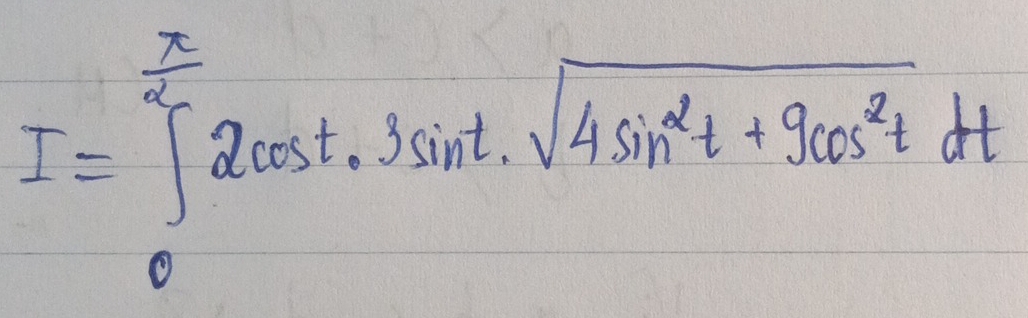 I = ∫₀^{π/2} 2cost . 3sint . √(4sin²t + 9cos²t) dt